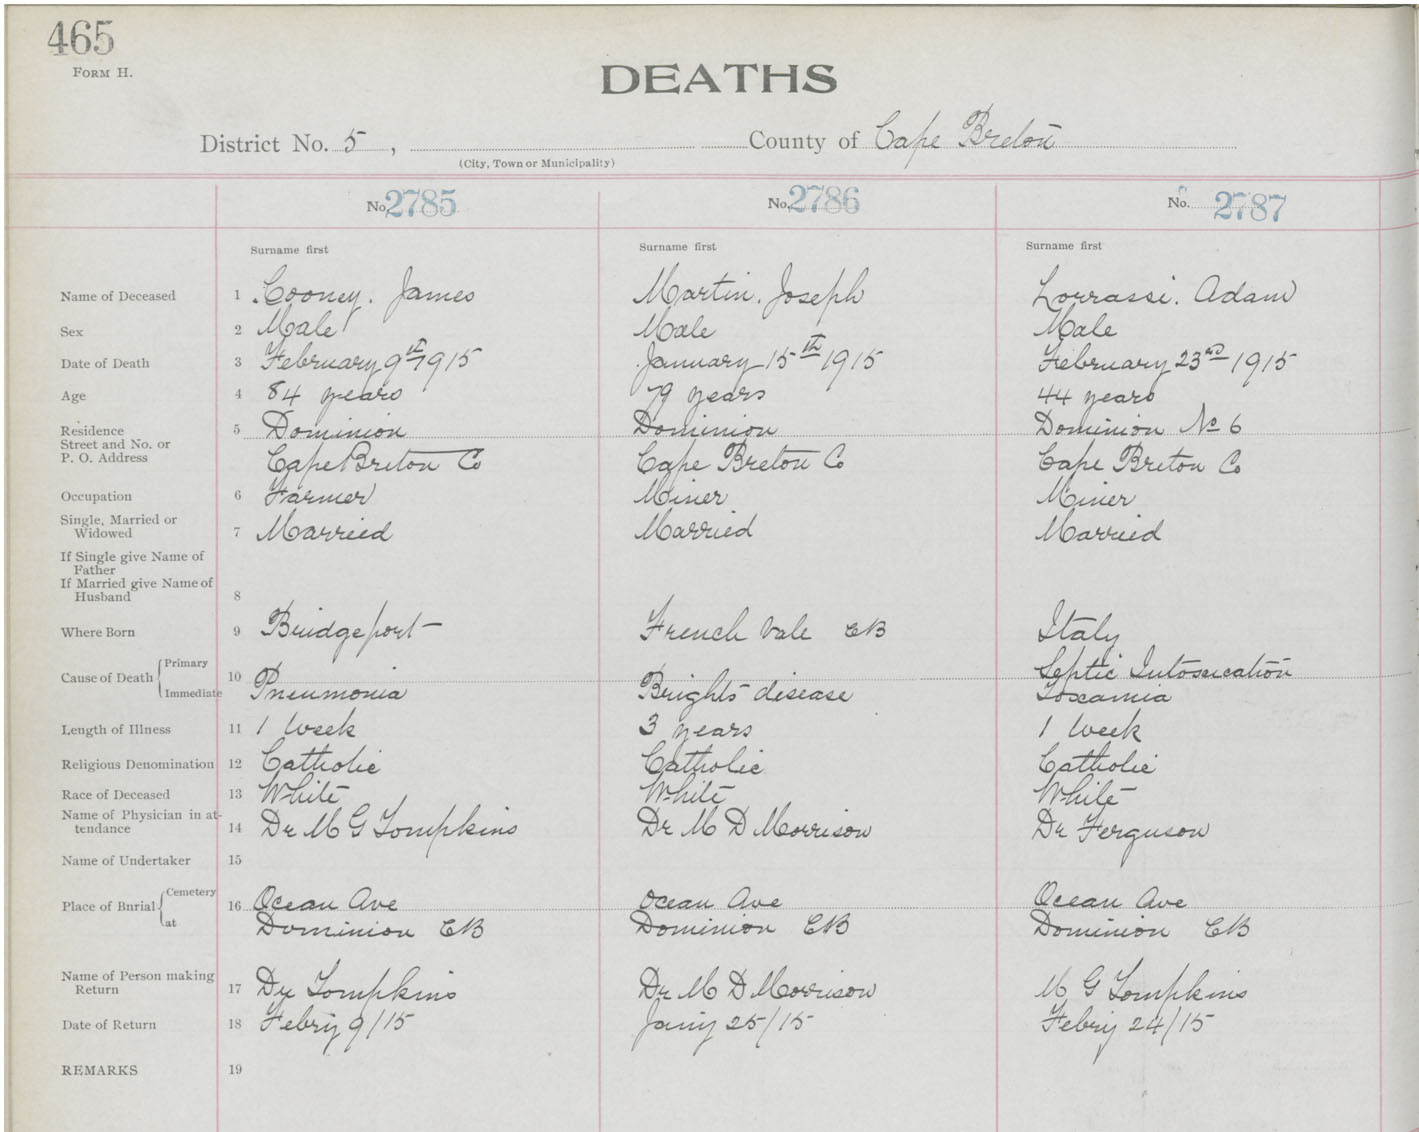 465
FORM H.
DEATHS
District No. 5 , County of Cape Breton
(City, Town or Municipality)
No. 2785 No. 2786 No. 2787
Surname first Surname first Surname first
Name of Deceased 1 Cooney. James Martin. Joseph Lorrassi. Adam
Sex 2 Male Male Male
Date of Death 3 February 9th 1915 January 15th 1915 February 23rd 1915
Age 4 84 years 79 years 44 years
Residence 5 Dominion Dominion Dominion No 6
Street and No. or
P. O. Address Cape Breton Co Cape Breton Co Cape Breton Co
Occupation 6 Farmer Miner Miner
Single, Married or
Widowed 7 Married Married Married
If Single give Name of
Father
If Married give Name of
Husband 8
Where Born 9 Bridgeport French Vale CB Italy
Cause of Death Primary 10 Septic Intoxication
Immediate Pneumonia Brights disease Toxamia
Length of Illness 11 1 Week 3 years 1 Week
Religious Denomination 12 Catholic Catholic Catholic
Race of Deceased 13 White White White
Name of Physician in at-
tendance 14 Dr M G Tompkins Dr M D Morrison Dr Ferguson
Name of Undertaker 15
Place of Burial Cemetery 16 Ocean Ave Ocean Ave Ocean Ave
at Dominion CB Dominion CB Dominion CB
Name of Person making
Return 17 Dr Tompkins Dr M D Morrison M G Tompkins
Date of Return 18 Febry 9/15 Jany 25/15 Febry 24/15
REMARKS 19